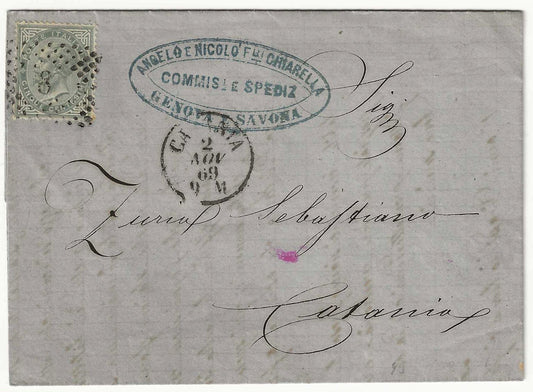 ANGELO E NICOLÒ F.LLI CHIARELLA
COMMIS. I E SPEDIZ
GENOVA SAVONA
8
CATANIA
2
NOV
69
9 M
Sig.
Zurria Sebastiano
Catania